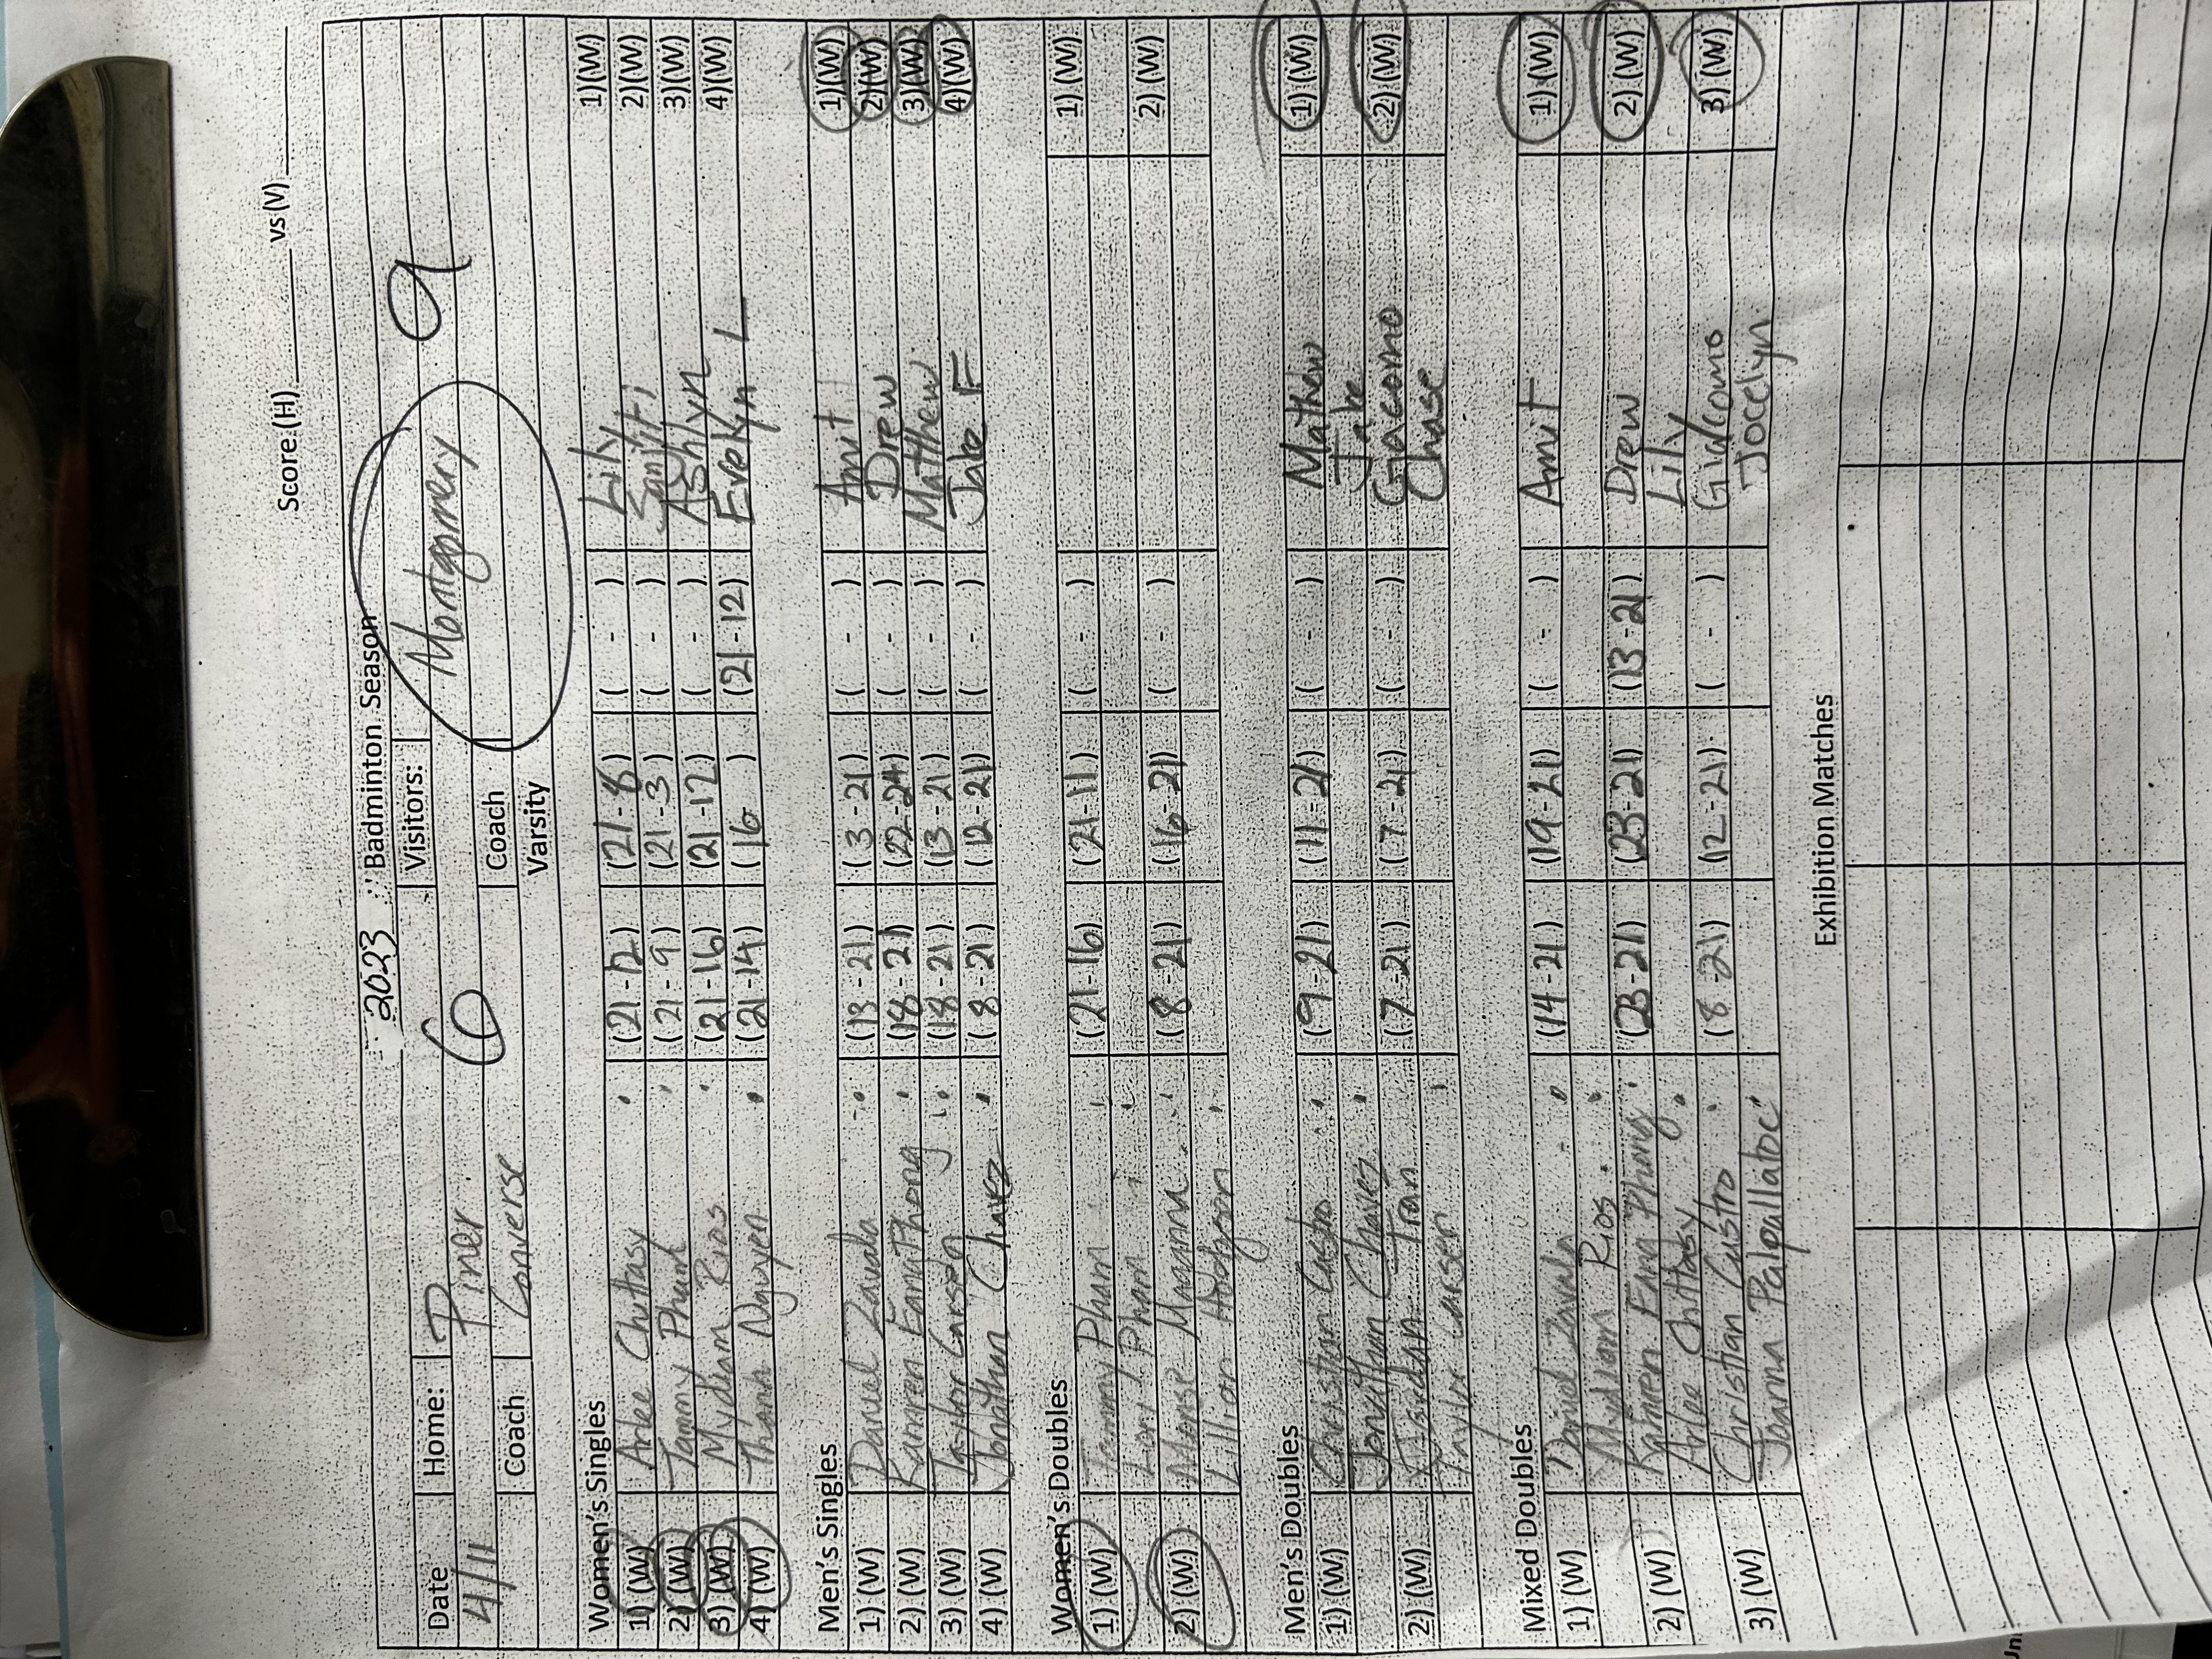 Score (H) ______ vs (V) ______
2023 Badminton Season
Date Home: Visitors:
4/11 Piner 6 Montgomery 9
Coach Converse Coach
Varsity
Women's Singles
1) (W) Arlee Chittasy (21-12) (21-8) ( - ) Lily 1) (W)
2) (W) Tammy Pham (21-9) (21-3) ( - ) 2) (W)
3) (W) Mydiam Rios (21-16) (21-12) ( - ) Ashlyn 3) (W)
4) (W) Thanh Nguyen (21-14) (16 ) (21-12) Evelyn L 4) (W)
Men's Singles
1) (W) Daniel Zavala (13-21) (3-21) ( - ) Amit 1) (W)
2) (W) Kamren Eang Phong (18-21) (22-24) ( - ) Drew 2) (W)
3) (W) Taylor Larsen (18-21) (13-21) ( - ) Matthew 3) (W)
4) (W) Jonathan Chavez (8-21) (12-21) ( - ) Jake F 4) (W)
Women's Doubles
1) (W) Tammy Pham (21-16) (21-11) ( - ) 1) (W)
Lori Pham
2) (W) Magana (8-21) (16-21) ( - ) 2) (W)
Lillian Hodgson
Men's Doubles
1) (W) Christian Castro (9-21) (11-21) ( - ) Mathew 1) (W)
Jonathan Chavez Jake
2) (W) Tran (7-21) (7-21) ( - ) Giacomo 2) (W)
Taylor Larsen Chase
Mixed Doubles
1) (W) Daniel Zavala (14-21) (19-21) ( - ) Amit 1) (W)
Mydiam Rios
2) (W) Kamren Eang Phong (23-21) (23-21) (13-21) Drew 2) (W)
Arlee Chittasy Lily
3) (W) Christian Castro (8-21) (12-21) ( - ) Giacomo 3) (W)
Joanna Jocelyn
Exhibition Matches